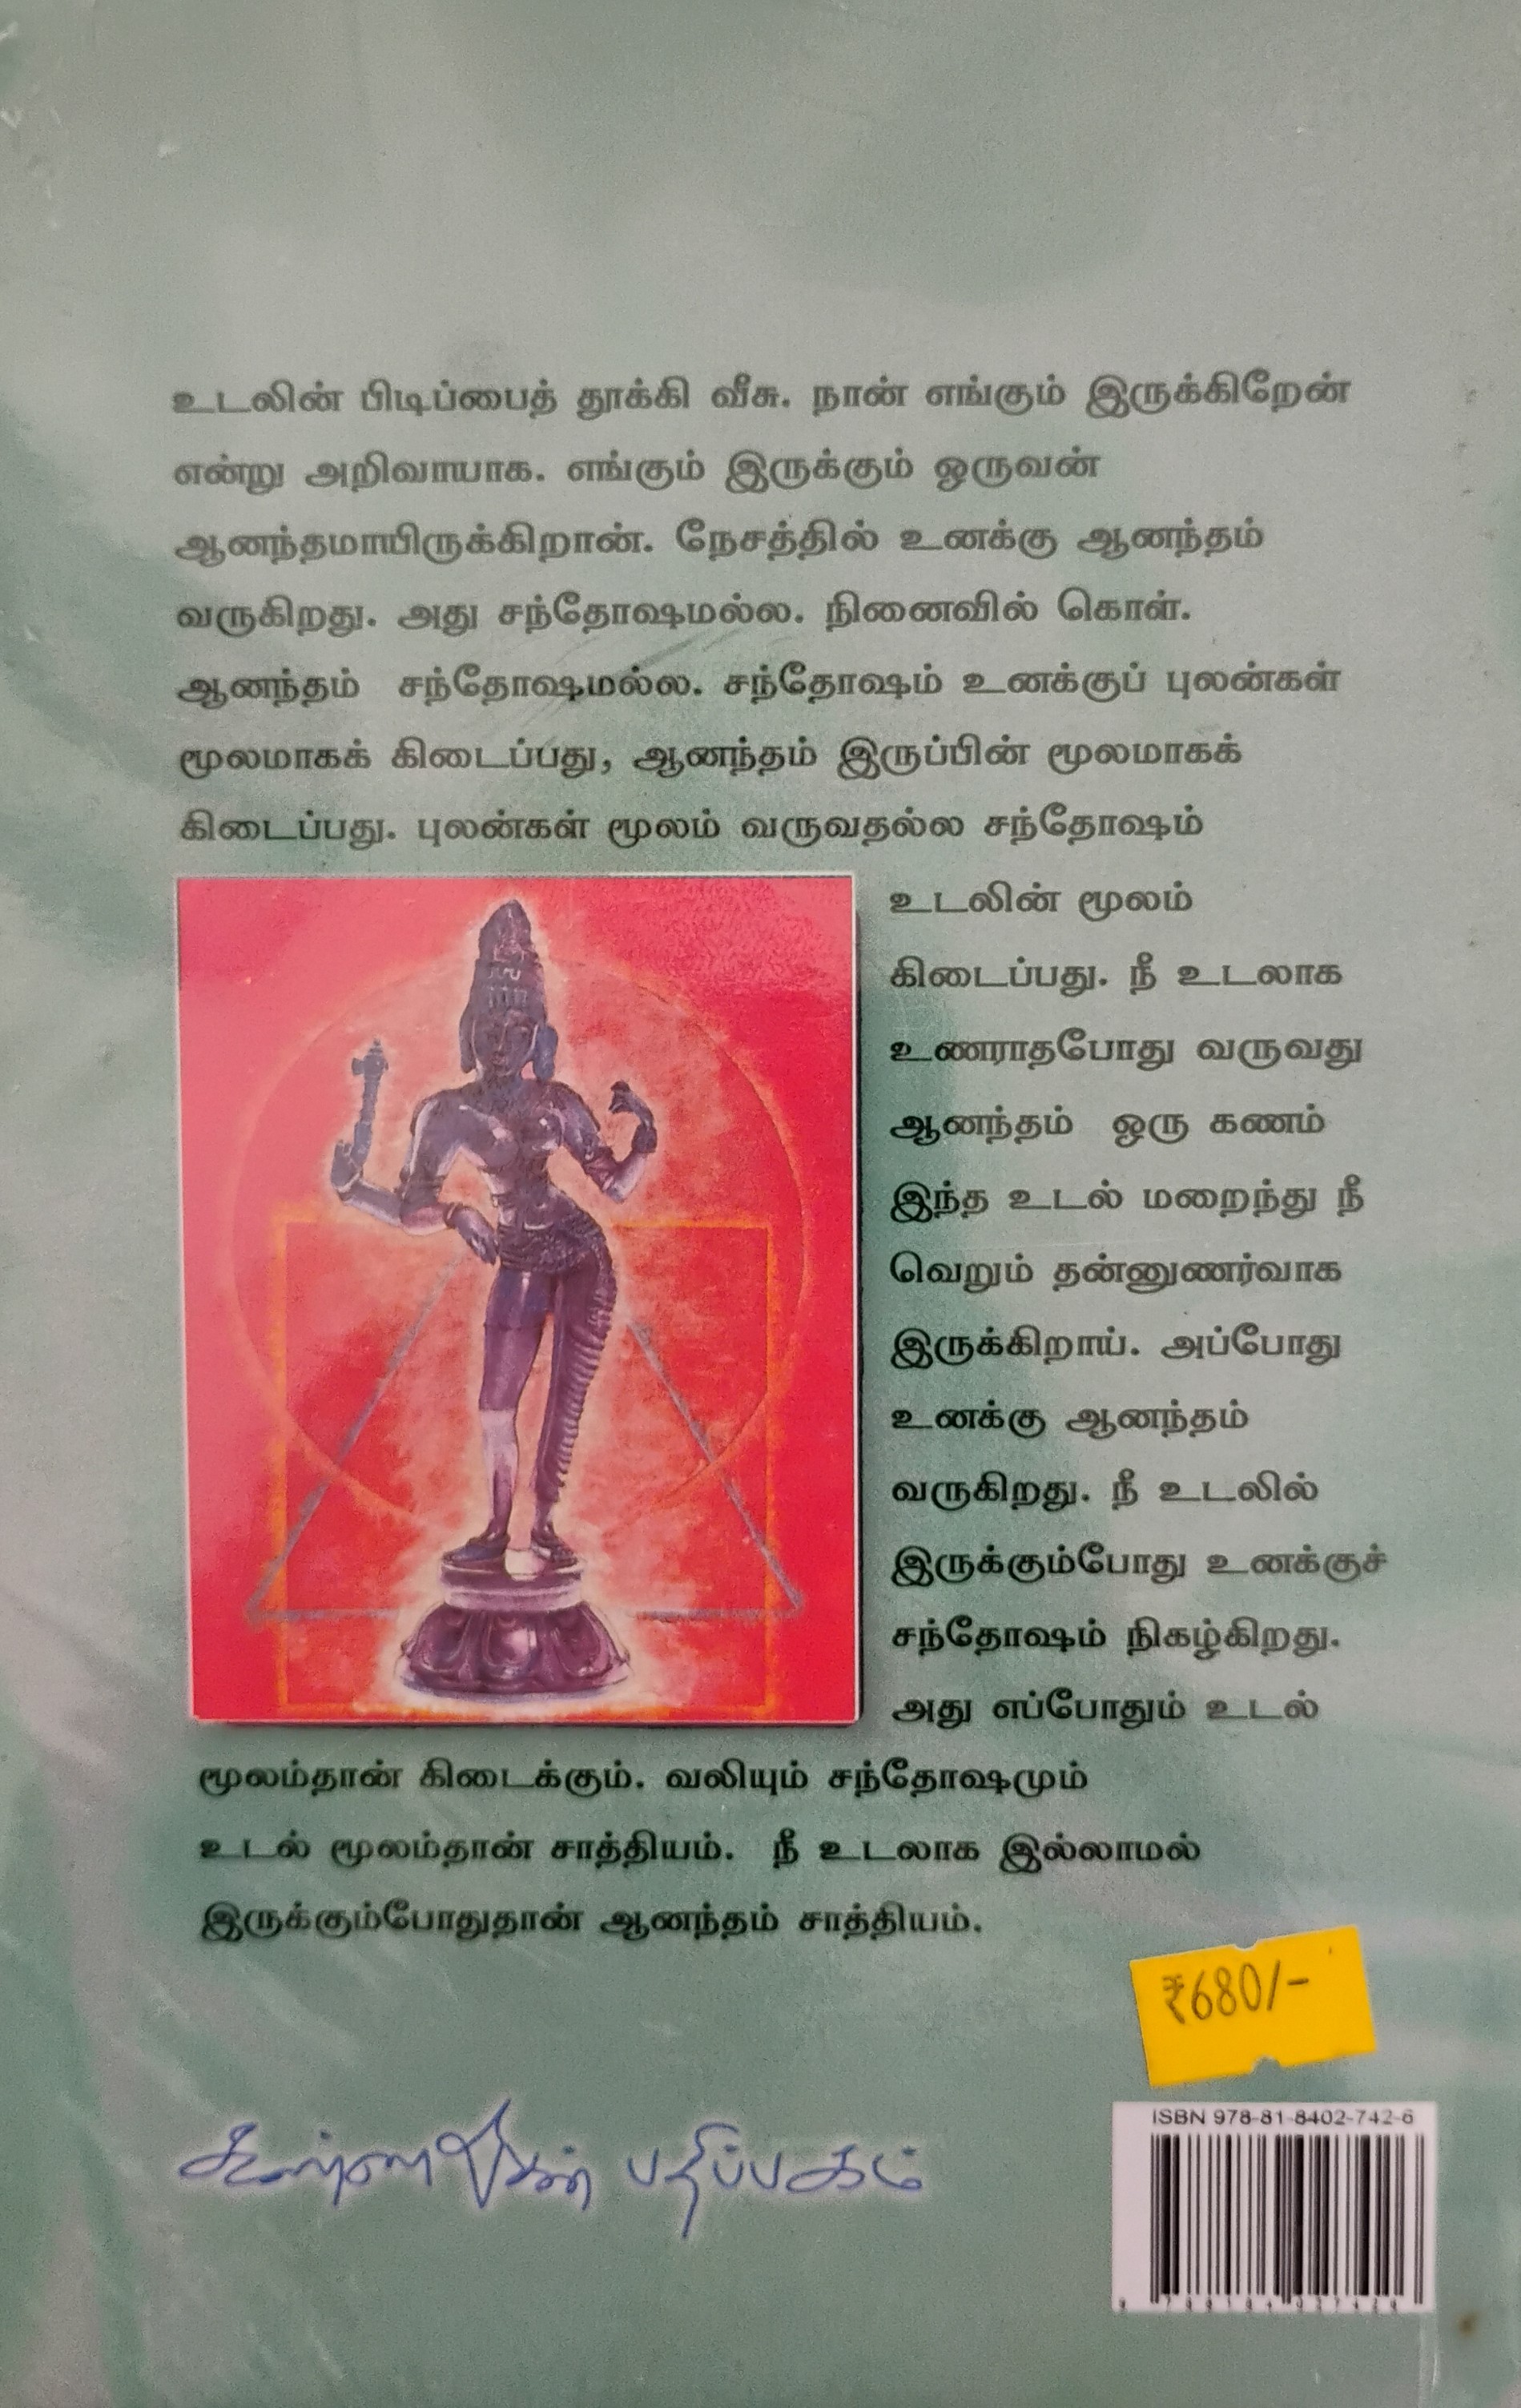 உடலின் பிடிப்பைத் தூக்கி வீசு. நான் எங்கும் இருக்கிறேன்
என்று அறிவாயாக. எங்கும் இருக்கும் ஒருவன்
ஆனந்தமாயிருக்கிறான். நேசத்தில் உனக்கு ஆனந்தம்
வருகிறது. அது சந்தோஷமல்ல. நினைவில் கொள்.
ஆனந்தம் சந்தோஷமல்ல. சந்தோஷம் உனக்குப் புலன்கள்
மூலமாகக் கிடைப்பது, ஆனந்தம் இருப்பின் மூலமாகக்
கிடைப்பது. புலன்கள் மூலம் வருவதல்ல சந்தோஷம்
உடலின் மூலம்
கிடைப்பது. நீ உடலாக
உணராதபோது வருவது
ஆனந்தம் ஒரு கணம்
இந்த உடல் மறைந்து நீ
வெறும் தன்னுணர்வாக
இருக்கிறாய். அப்போது
உனக்கு ஆனந்தம்
வருகிறது. நீ உடலில்
இருக்கும்போது உனக்குச்
சந்தோஷம் நிகழ்கிறது.
அது எப்போதும் உடல்
மூலம்தான் கிடைக்கும். வலியும் சந்தோஷமும்
உடல் மூலம்தான் சாத்தியம். நீ உடலாக இல்லாமல்
இருக்கும்போதுதான் ஆனந்தம் சாத்தியம்.
₹680/-
கண்ணதாசன் பதிப்பகம்
ISBN 978-81-8402-742-6